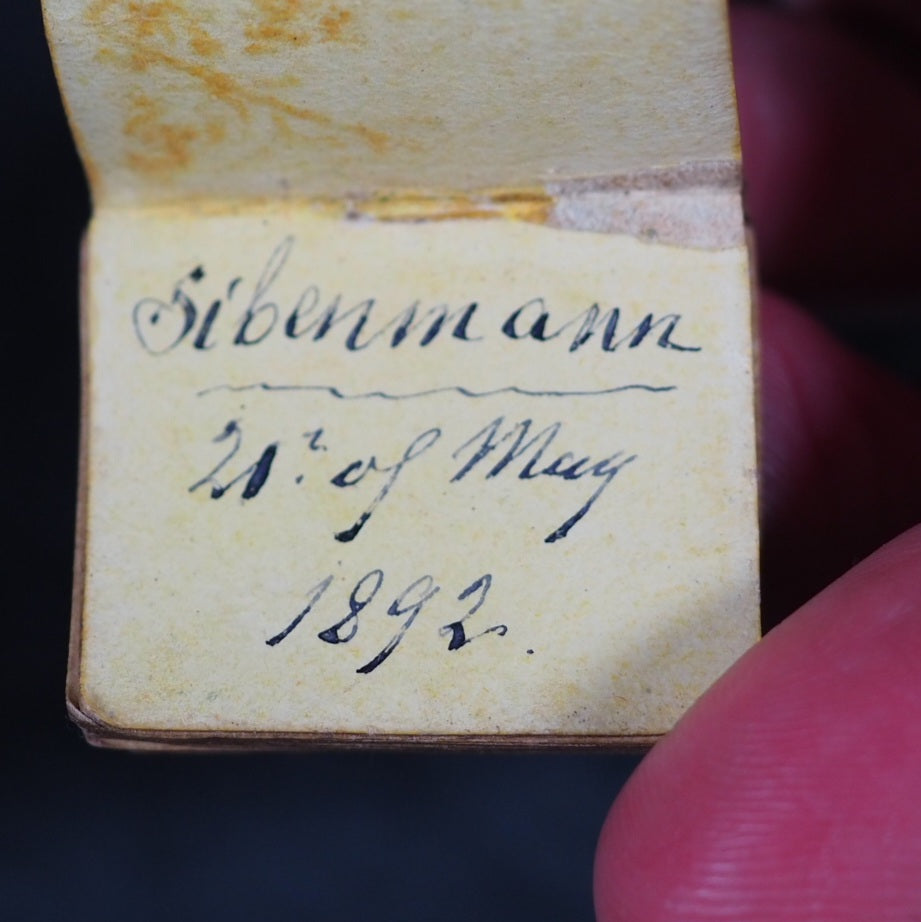 Sibenmann
21? of May
1892.